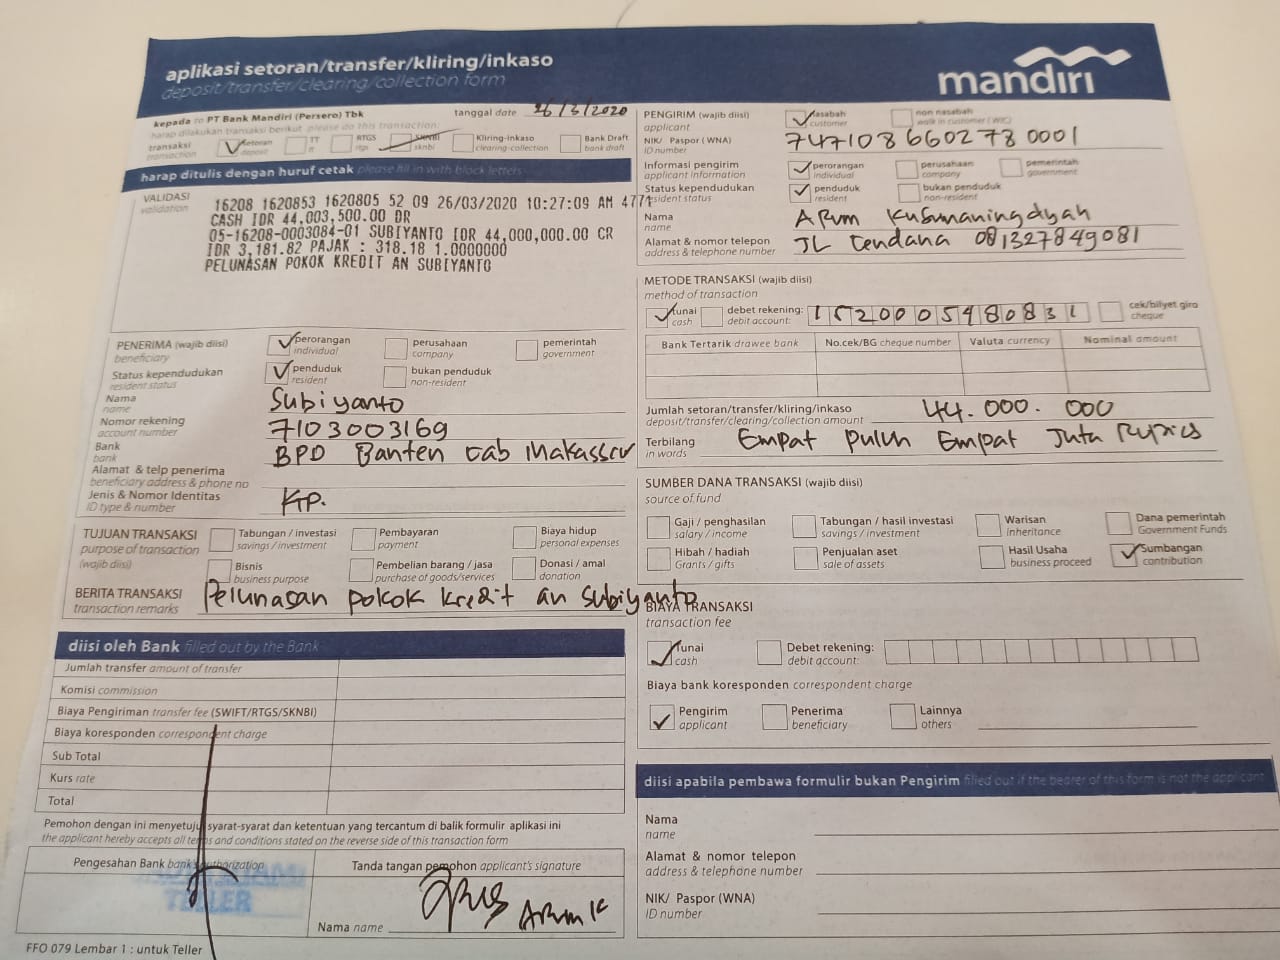 aplikasi setoran/transfer/kliring/inkaso
deposit/transfer/clearing/collection form
mandiri
kepada to PT Bank Mandiri (Persero) Tbk
tanggal date 26/3/2020
harap dilakukan transaksi berikut please do this transaction:
transaksi
transaction
Setoran
deposit
TT
tt
RTGS
rtgs
SKNBI
sknbi
Kliring-inkaso
clearing-collection
Bank Draft
bank draft
harap ditulis dengan huruf cetak please fill in with block letters
VALIDASI
validation
16208 1620853 1620805 52 09 26/03/2020 10:27:09 AM 4771
CASH IDR 44,003,500.00 DR
05-16208-0003084-01 SUBIYANTO IDR 44,000,000.00 CR
IDR 3,181.82 PAJAK : 318.18 1.0000000
PELUNASAN POKOK KREDIT AN SUBIYANTO
PENERIMA (wajib diisi)
beneficiary
perorangan
individual
perusahaan
company
pemerintah
government
Status kependudukan
resident status
penduduk
resident
bukan penduduk
non-resident
Nama
name
Subiyanto
Nomor rekening
account number
7103003169
Bank
bank
BPD Banten cab Makassar
Alamat & telp penerima
beneficiary address & phone no
Jenis & Nomor Identitas
ID type & number
KTP.
TUJUAN TRANSAKSI
purpose of transaction
(wajib diisi)
Tabungan / investasi
savings / investment
Pembayaran
payment
Biaya hidup
personal expenses
Bisnis
business purpose
Pembelian barang / jasa
purchase of goods/services
Donasi / amal
donation
BERITA TRANSAKSI
transaction remarks
Pelunasan pokok kredit an Subiyanto
diisi oleh Bank filled out by the Bank
Jumlah transfer amount of transfer
Komisi commission
Biaya Pengiriman transfer fee (SWIFT/RTGS/SKNBI)
Biaya koresponden correspondent charge
Sub Total
Kurs rate
Total
Pemohon dengan ini menyetujui syarat-syarat dan ketentuan yang tercantum di balik formulir aplikasi ini
the applicant hereby accepts all terms and conditions stated on the reverse side of this transaction form
Pengesahan Bank bank's authorization
TELLER
Tanda tangan pemohon applicant's signature
Arum K
Nama name
FFO 079 Lembar 1 : untuk Teller
PENGIRIM (wajib diisi)
applicant
nasabah
customer
non nasabah
walk in customer (WIC)
NIK/ Paspor (WNA)
ID number
7471086602780001
Informasi pengirim
applicant information
perorangan
individual
perusahaan
company
pemerintah
government
Status kependudukan
resident status
penduduk
resident
bukan penduduk
non-resident
Nama
name
Arum Kusumaningdyah
Alamat & nomor telepon
address & telephone number
JL Cendana 081327849081
METODE TRANSAKSI (wajib diisi)
method of transaction
tunai
cash
debet rekening:
debit account:
1520005480831
cek/bilyet giro
cheque
Bank Tertarik drawee bank
No.cek/BG cheque number
Valuta currency
Nominal amount
Jumlah setoran/transfer/kliring/inkaso
deposit/transfer/clearing/collection amount
44.000.000
Terbilang
in words
Empat Puluh Empat Juta Rupias
SUMBER DANA TRANSAKSI (wajib diisi)
source of fund
Gaji / penghasilan
salary / income
Tabungan / hasil investasi
savings / investment
Warisan
Inheritance
Dana pemerintah
Government Funds
Hibah / hadiah
Grants / gifts
Penjualan aset
sale of assets
Hasil Usaha
business proceed
Sumbangan
contribution
BIAYA TRANSAKSI
transaction fee
Tunai
cash
Debet rekening:
debit account:
Biaya bank koresponden correspondent charge
Pengirim
applicant
Penerima
beneficiary
Lainnya
others
diisi apabila pembawa formulir bukan Pengirim filled out if the bearer of this form is not the applicant
Nama
name
Alamat & nomor telepon
address & telephone number
NIK/ Paspor (WNA)
ID number